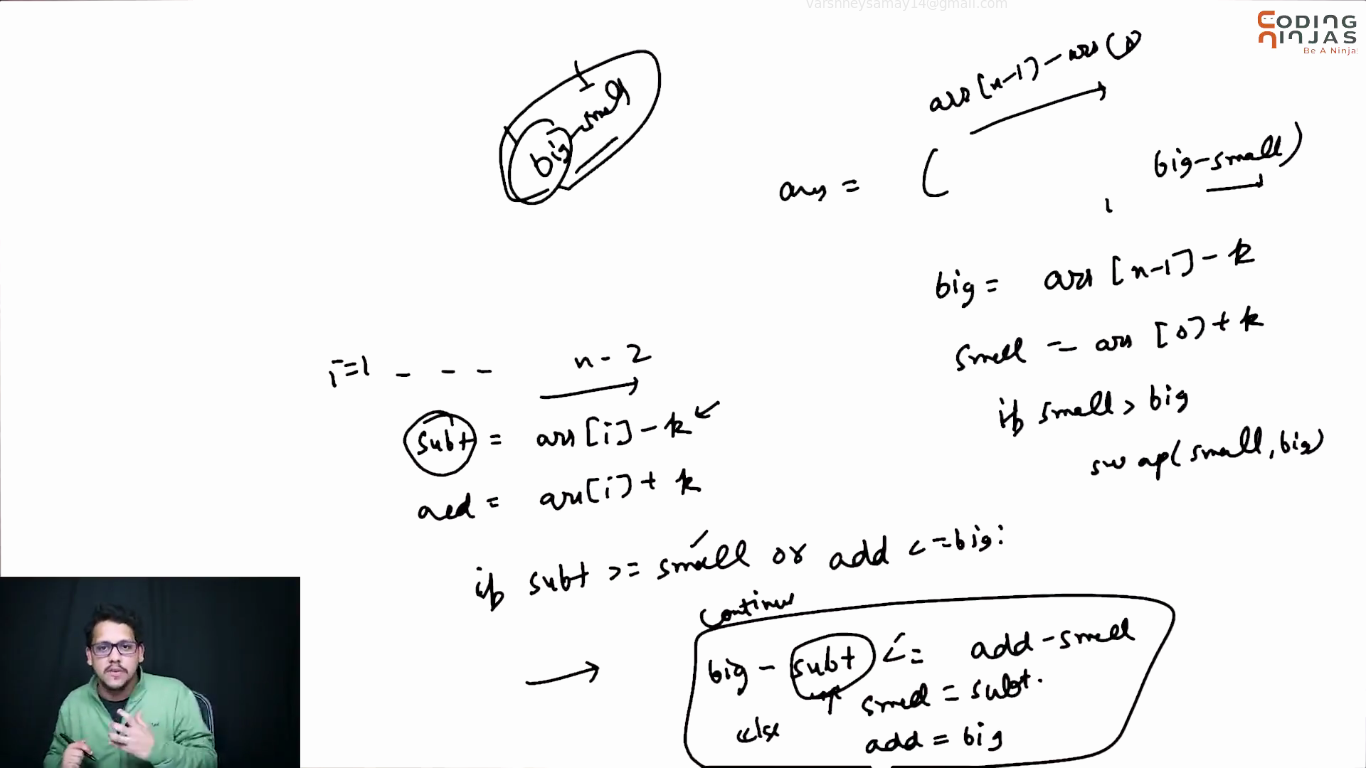 varshneysamay14@gmail.com
CODING
NINJAS
Be A Ninja
big - small
arr[n-1] - arr[0]
ans = (
, big-small)
big = arr [n-1] - k
small = arr [0] + k
if small > big
swap(small, big)
i=1 - - - n-2
subt = arr[i] - k
add = arr[i] + k
if subt >= small or add <= big:
Continue
big - subt <= add - small
small = subt.
else
add = big